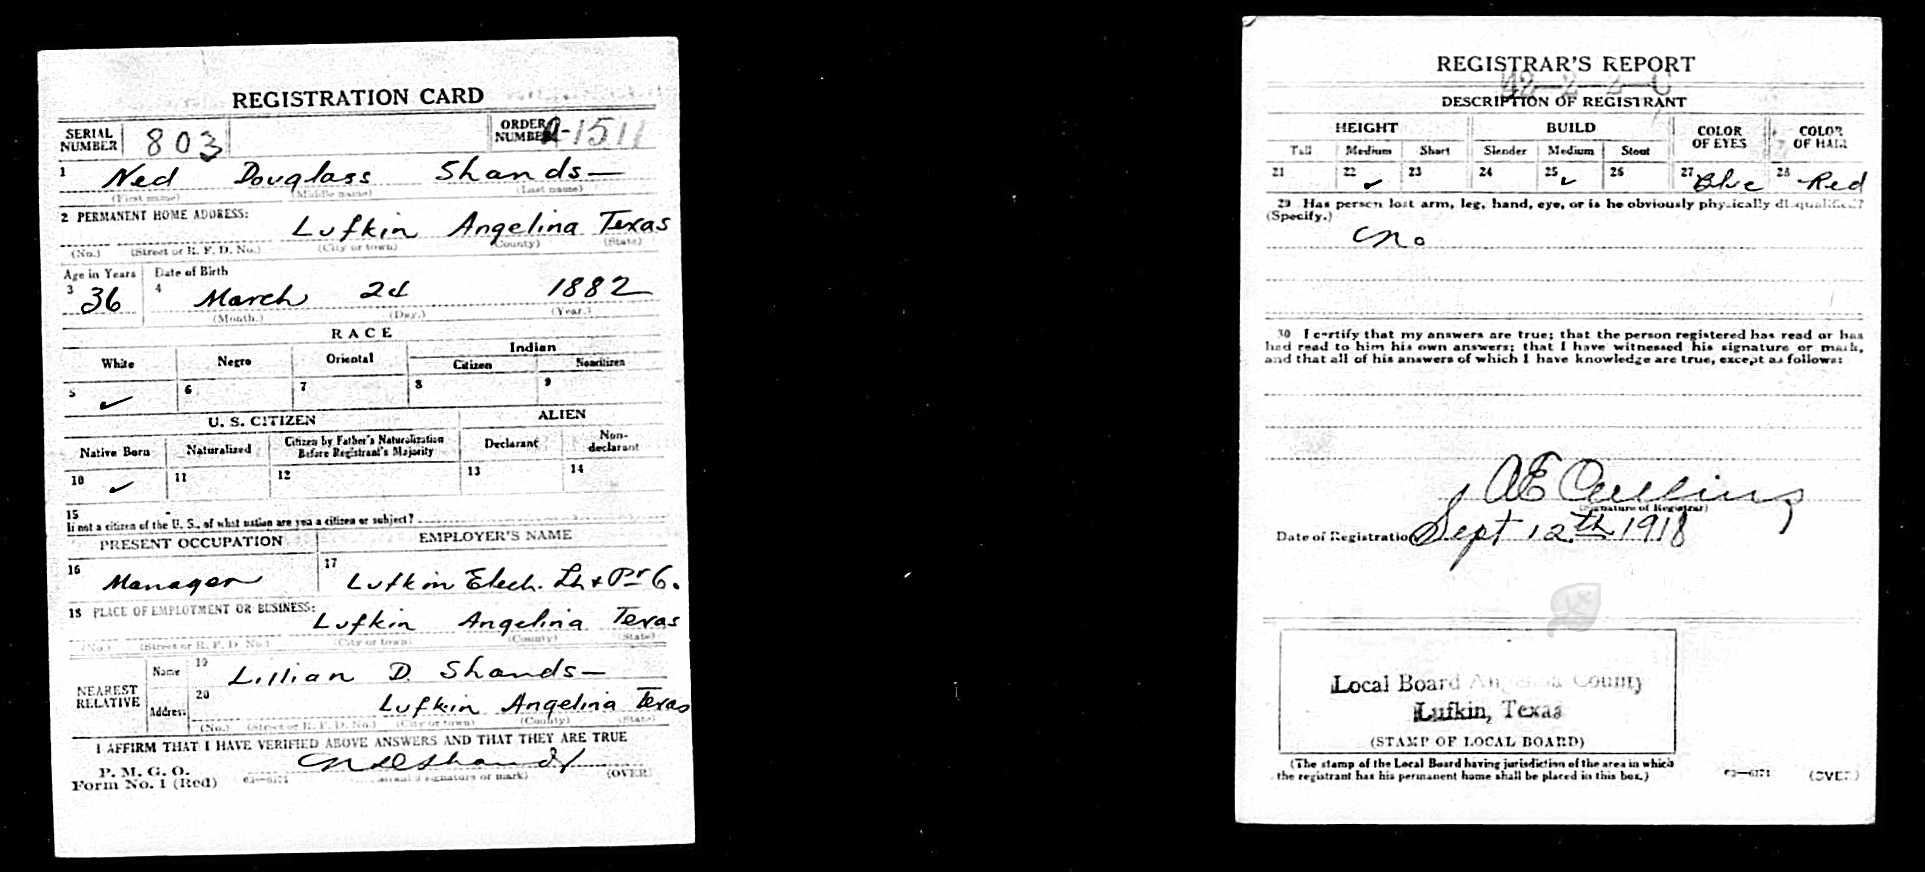 REGISTRATION CARD
SERIAL NUMBER 803 ORDER NUMBER A-1511
1 Ned Douglass Shands—
(First name) (Middle name) (Last name)
2 PERMANENT HOME ADDRESS:
Lufkin Angelina Texas
(No.) (Street or R. F. D. No.) (City or town) (County) (State)
Age in Years Date of Birth
3 36 4 March 24 1882
(Month.) (Day.) (Year.)
RACE
White Negro Oriental Indian
Citizen Noncitizen
5 ✓ 6 7 8 9
U. S. CITIZEN ALIEN
Native Born Naturalized Citizen by Father's Naturalization Before Registrant's Majority Declarant Non-declarant
10 ✓ 11 12 13 14
15
If not a citizen of the U. S., of what nation are you a citizen or subject?
PRESENT OCCUPATION EMPLOYER'S NAME
16 Manager 17 Lufkin Elech. Lh + Pr Co.
18 PLACE OF EMPLOYMENT OR BUSINESS:
Lufkin Angelina Texas
(No.) (Street or R. F. D. No.) (City or town) (County) (State)
NEAREST RELATIVE Name 19 Lillian D. Shands—
Address 20 Lufkin Angelina Texas
(No.) (Street or R. F. D. No.) (City or town) (County) (State)
I AFFIRM THAT I HAVE VERIFIED ABOVE ANSWERS AND THAT THEY ARE TRUE
P. M. G. O.
Form No. 1 (Red) 03—6171 signature or mark) (OVER)
REGISTRAR'S REPORT
DESCRIPTION OF REGISTRANT
HEIGHT BUILD COLOR OF EYES COLOR OF HAIR
Tall Medium Short Slender Medium Stout
21 22 ✓ 23 24 25 ✓ 26 27 Blue 28 Red
29 Has person lost arm, leg, hand, eye, or is he obviously physically disqualified?
(Specify.)
No
30 I certify that my answers are true; that the person registered has read or has
had read to him his own answers; that I have witnessed his signature or mark,
and that all of his answers of which I have knowledge are true, except as follows:
(Signature of Registrar)
Date of Registration Sept 12th 1918
Local Board Angelina County
Lufkin, Texas
(STAMP OF LOCAL BOARD)
(The stamp of the Local Board having jurisdiction of the area in which
the registrant has his permanent home shall be placed in this box.)
03—6171 (OVER)